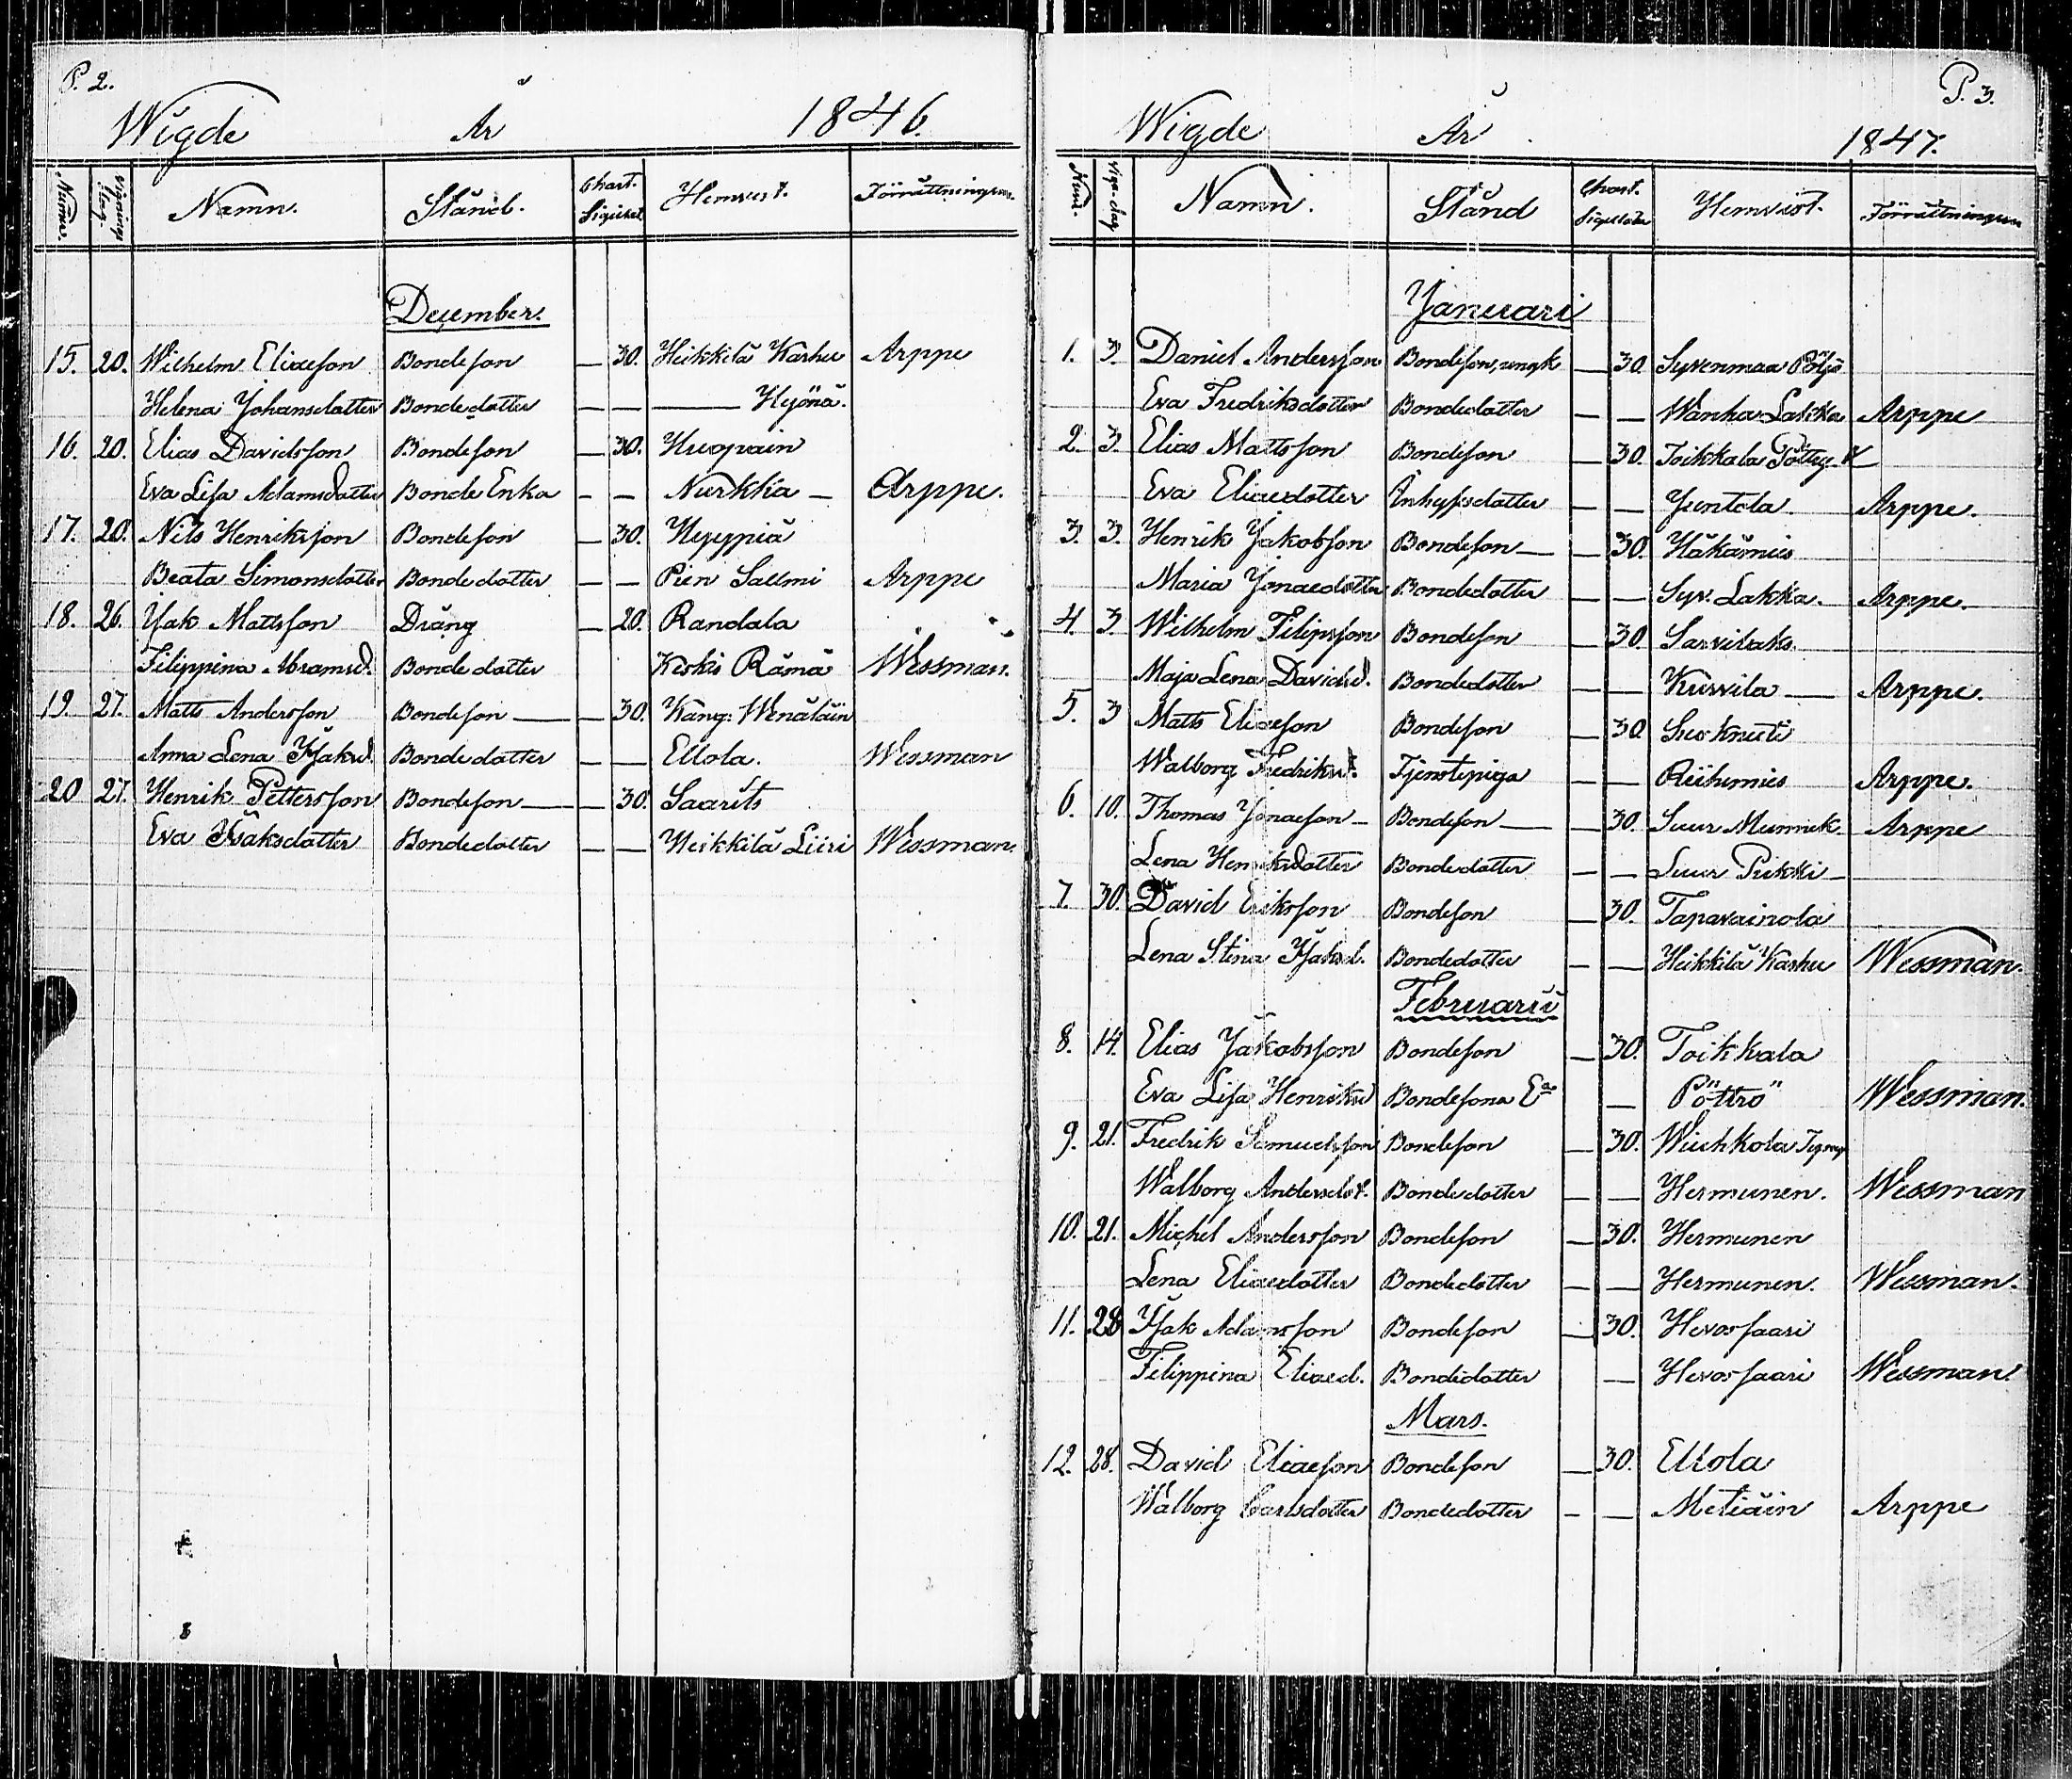 P. 2.
Wigde År 1846.
Numer. Vignings dag. Namn. Stånd. Chart. Sigillat Hemvist. Förrättningsm.
December.
15. 20. Wilhelm Eliaeson Bondeson — 30. Heikkilä Karhu Arppe
Helena Johansdotter Bondedotter — — — Hyönä.
16. 20. Elias Davidsson Bondeson — 30. Huopain
Eva Lisa Adamsdotter Bonde Enka - - Nurkka — Arppe.
17. 20. Nils Henriksson Bondeson — 30. Heppiä
Beata Simonsdotter Bondedotter — — Pien Salmi Arppe
18. 26. Isak Mattsson Dräng — 20. Randala
Filippina Abramsd. Bondedotter Keski Rämä Wessman.
19. 27. Matts Andersson Bondeson — — 30. Käng: Wenäläin
Anna Lena Isaksd. Bondedotter — — Ellola. Wessman
20 27. Henrik Pettersson Bondeson — — 30. Saarits
Eva Isaksdotter Bondedotter — — Heikkilä Liiri Wessman.
P. 3.
Wigde År 1847.
Num. Vigs-dag Namn. Stånd Chart. Sigillat Hemvist. Förrättningsm
Januari
1. 3. Daniel Andersson Bondeson, — 30. Syvenmaa Pöljö
Eva Fredriksdotter Bondedotter — — Wanha Lakka Arppe
2. 3. Elias Mattsson Bondeson — 30. Toikkala
Eva Eliaedotter Inhysesdotter — — Juntola. Arppe.
3. 3. Henrik Jakobson Bondeson — — 30. Häkämies
Maria Jonaedotter Bondedotter — — Syv. Lakka. Arppe.
4. 3. Wilhelm Filipsson Bondeson — 30. Sarvilaks.
Maja Lena Davidsd. Bondedotter — — Kussila — Arppe.
5. 3 Matts Eliaeson Bondeson — 30 Suoknuti
Walborg Fredriksd. Tjenstepiga — — Riihimies Arppe.
6. 10. Thomas Jonaeson — Bondeson — — 30. Suur Munnek. Arppe
Lena Henriksdotter Bondedotter — — Suur Pukki —
7. 30. David Eriksson Bondeson — 30. Tapavainola
Lena Stina Isaksd. Bondedotter — — Heikkilä Karhu Wessman.
Februarii
8. 14. Elias Jakobsson Bondeson — 30. Toikkala
Eva Lisa Henriksd Bondesons Ea — Pöttrö Wessman.
9. 21. Fredrik Samuelsson Bondeson — 30. Wiuhkola
Walborg Andersdot. Bondedotter — — Hermunen. Wessman
10. 21. Michel Andersson Bondeson — 30. Hermunen
Lena Eliaedotter Bondedotter — — Hermunen. Wessman.
11. 28 Isak Adamsson Bondeson — 30. Hevossaari
Filippina Eliaed. Bondedotter — Hevossaari Wessman.
Mars.
12. 28. David Eliaeson Bondeson — 30. Ellola
Walborg Carlsdotter Bondedotter - — Metiäin Arppe